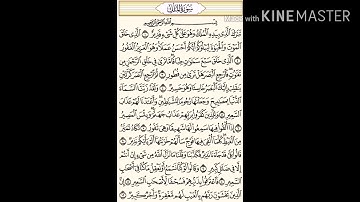 Made with KINEMASTER
سُورَةُ المُلْكِ
بِسْمِ اللَّهِ الرَّحْمَٰنِ الرَّحِيمِ
تَبَارَكَ الَّذِي بِيَدِهِ الْمُلْكُ وَهُوَ عَلَىٰ كُلِّ شَيْءٍ قَدِيرٌ ١ الَّذِي خَلَقَ
الْمَوْتَ وَالْحَيَاةَ لِيَبْلُوَكُمْ أَيُّكُمْ أَحْسَنُ عَمَلًا وَهُوَ الْعَزِيزُ الْغَفُورُ ٢
الَّذِي خَلَقَ سَبْعَ سَمَاوَاتٍ طِبَاقًا مَّا تَرَىٰ فِي خَلْقِ الرَّحْمَٰنِ مِن
تَفَاوُتٍ فَارْجِعِ الْبَصَرَ هَلْ تَرَىٰ مِن فُطُورٍ ٣ ثُمَّ ارْجِعِ الْبَصَرَ كَرَّتَيْنِ
يَنقَلِبْ إِلَيْكَ الْبَصَرُ خَاسِئًا وَهُوَ حَسِيرٌ ٤
السَّعِيرِ ٥ وَلِلَّذِينَ كَفَرُوا بِرَبِّهِمْ عَذَابُ جَهَنَّمَ وَبِئْسَ الْمَصِيرُ ٦
إِذَا أُلْقُوا فِيهَا سَمِعُوا لَهَا شَهِيقًا وَهِيَ تَفُورُ ٧
مِنَ الْغَيْظِ كُلَّمَا أُلْقِيَ فِيهَا فَوْجٌ سَأَلَهُمْ خَزَنَتُهَا أَلَمْ يَأْتِكُمْ نَذِيرٌ ٨
قَالُوا بَلَىٰ قَدْ جَاءَنَا نَذِيرٌ فَكَذَّبْنَا وَقُلْنَا مَا نَزَّلَ اللَّهُ مِن شَيْءٍ إِنْ أَنتُمْ
إِلَّا فِي ضَلَالٍ كَبِيرٍ ٩ وَقَالُوا لَوْ كُنَّا نَسْمَعُ أَوْ نَعْقِلُ مَا كُنَّا فِي أَصْحَابِ
السَّعِيرِ ١٠ فَاعْتَرَفُوا بِذَنبِهِمْ فَسُحْقًا لِّأَصْحَابِ السَّعِيرِ ١١
إِنَّ الَّذِينَ يَخْشَوْنَ رَبَّهُم بِالْغَيْبِ لَهُم مَّغْفِرَةٌ وَأَجْرٌ كَبِيرٌ ١٢